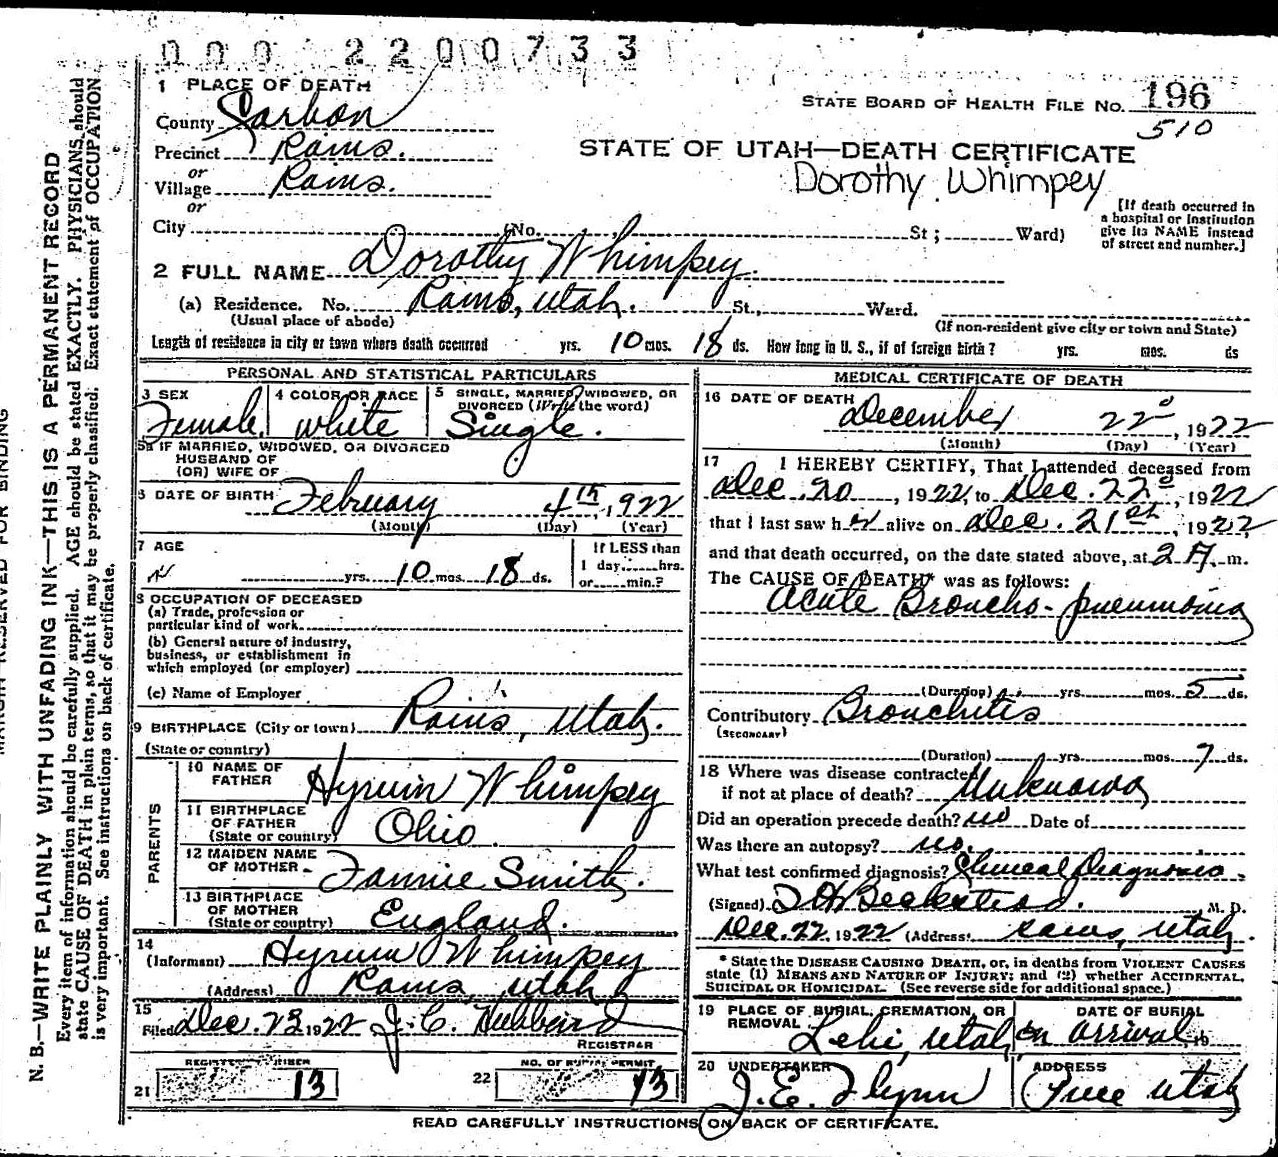 000 2200733
1 PLACE OF DEATH
STATE BOARD OF HEALTH FILE No. 196
510
County Carbon
Precinct Rains.
or
Village Rains.
or
STATE OF UTAH—DEATH CERTIFICATE
Dorothy Whimpey
[If death occurred in
a hospital or institution
give its NAME instead
of street and number.]
City (No. St ; Ward)
2 FULL NAME Dorothy Whimpey.
(a) Residence. No. Rains, Utah. St., Ward.
(Usual place of abode) (If non-resident give city or town and State)
Length of residence in city or town where death occurred yrs. 10 mos. 18 ds. How long in U. S., if of foreign birth? yrs. mos. ds
PERSONAL AND STATISTICAL PARTICULARS
3 SEX
Female.
4 COLOR OR RACE
White
5 SINGLE, MARRIED, WIDOWED, OR
DIVORCED (Write the word)
Single.
5a IF MARRIED, WIDOWED, OR DIVORCED
HUSBAND OF
(OR) WIFE OF
6 DATE OF BIRTH February 4th, 1922
(Month) (Day) (Year)
7 AGE
yrs. 10 mos. 18 ds.
If LESS than
1 day, hrs.
or min.?
8 OCCUPATION OF DECEASED
(a) Trade, profession or
particular kind of work
(b) General nature of industry,
business, or establishment in
which employed (or employer)
(c) Name of Employer
9 BIRTHPLACE (City or town) Rains, Utah.
(State or country)
PARENTS
10 NAME OF
FATHER Hyrum Whimpey
11 BIRTHPLACE
OF FATHER
(State or country) Ohio.
12 MAIDEN NAME
OF MOTHER Fannie Smith.
13 BIRTHPLACE
OF MOTHER
(State or country) England.
14
(Informant) Hyrum Whimpey
(Address) Rains, Utah
15
Filed Dec. 23 1922 J. C. Hubbard
REGISTRAR
REGISTERED NUMBER
21 13
NO. OF BURIAL PERMIT
22 13
MEDICAL CERTIFICATE OF DEATH
16 DATE OF DEATH
December 22d, 1922
(Month) (Day) (Year)
17 I HEREBY CERTIFY, That I attended deceased from
Dec. 20, 1922, to Dec. 22d, 1922
that I last saw her alive on Dec. 21st, 1922,
and that death occurred, on the date stated above, at 2 A. m.
The CAUSE OF DEATH* was as follows:
Acute Broncho-pneumonia
(Duration) yrs. mos. 5 ds.
Contributory Bronchitis
(SECONDARY)
(Duration) yrs. mos. 7 ds.
18 Where was disease contracted
if not at place of death? Unknown
Did an operation precede death? no Date of
Was there an autopsy? no.
What test confirmed diagnosis? Clinical Diagnosis.
(Signed) Beckstead. M. D.
Dec. 22 1922 (Address) Rains, Utah.
* State the DISEASE CAUSING DEATH, or, in deaths from VIOLENT CAUSES
state (1) MEANS AND NATURE OF INJURY; and (2) whether ACCIDENTAL,
SUICIDAL OR HOMICIDAL. (See reverse side for additional space.)
19 PLACE OF BURIAL, CREMATION, OR
REMOVAL
Lehi, Utah
DATE OF BURIAL
on arrival 19
20 UNDERTAKER
J. E. Flynn
ADDRESS
Price Utah
READ CAREFULLY INSTRUCTIONS ON BACK OF CERTIFICATE.
MARGIN RESERVED FOR BINDING
N. B.—WRITE PLAINLY WITH UNFADING INK—THIS IS A PERMANENT RECORD
Every item of information should be carefully supplied. AGE should be stated EXACTLY. PHYSICIANS should
state CAUSE OF DEATH in plain terms, so that it may be properly classified. Exact statement of OCCUPATION
is very important. See instructions on back of certificate.